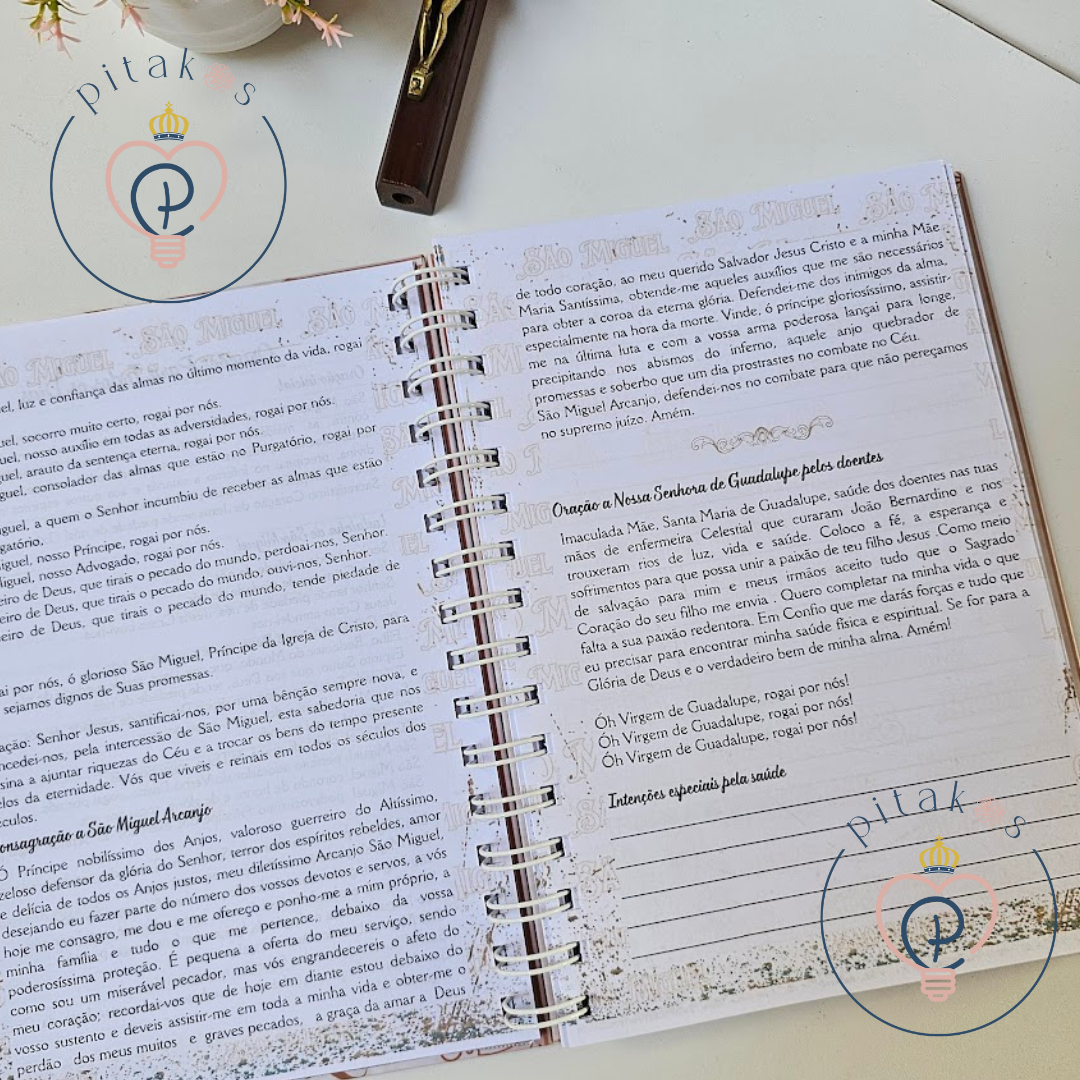 pitakos
P
SÃO MIGUEL
SÃO MIGUEL
el, luz e confiança das almas no último momento da vida, rogai
uel, socorro muito certo, rogai por nós.
uel, nosso auxílio em todas as adversidades, rogai por nós.
guel, arauto da sentença eterna, rogai por nós.
guel, consolador das almas que estão no Purgatório, rogai por
iguel, a quem o Senhor incumbiu de receber as almas que estão
gatório.
iguel, nosso Príncipe, rogai por nós.
iguel, nosso Advogado, rogai por nós.
eiro de Deus, que tirais o pecado do mundo, perdoai-nos, Senhor.
eiro de Deus, que tirais o pecado do mundo, ouvi-nos, Senhor.
eiro de Deus, que tirais o pecado do mundo, tende piedade de
ai por nós, ó glorioso São Miguel, Príncipe da Igreja de Cristo, para
sejamos dignos de Suas promessas.
ação: Senhor Jesus, santificai-nos, por uma bênção sempre nova, e
ncedei-nos, pela intercessão de São Miguel, esta sabedoria que nos
sina a ajuntar riquezas do Céu e a trocar os bens do tempo presente
elos da eternidade. Vós que viveis e reinais em todos os séculos dos
éculos.
onsagração a São Miguel Arcanjo
Ó Príncipe nobilíssimo dos Anjos, valoroso guerreiro do Altíssimo,
zeloso defensor da glória do Senhor, terror dos espíritos rebeldes, amor
e delícia de todos os Anjos justos, meu diletíssimo Arcanjo São Miguel,
desejando eu fazer parte do número dos vossos devotos e servos, a vós
hoje me consagro, me dou e me ofereço e ponho-me a mim próprio, a
minha família e tudo o que me pertence, debaixo da vossa
poderosíssima proteção. É pequena a oferta do meu serviço, sendo
como sou um miserável pecador, mas vós engrandecereis o afeto do
meu coração; recordai-vos que de hoje em diante estou debaixo do
vosso sustento e deveis assistir-me em toda a minha vida e obter-me o
perdão dos meus muitos e graves pecados, a graça da amar a Deus
SÃO MIGUEL SÃO MIGUEL SÃO M
de todo coração, ao meu querido Salvador Jesus Cristo e a minha Mãe
Maria Santíssima, obtende-me aqueles auxílios que me são necessários
para obter a coroa da eterna glória. Defendei-me dos inimigos da alma,
especialmente na hora da morte. Vinde, ó príncipe gloriosíssimo, assistir-
me na última luta e com a vossa arma poderosa lançai para longe,
precipitando nos abismos do inferno, aquele anjo quebrador de
promessas e soberbo que um dia prostrastes no combate no Céu.
São Miguel Arcanjo, defendei-nos no combate para que não pereçamos
no supremo juízo. Amém.
Oração a Nossa Senhora de Guadalupe pelos doentes
Imaculada Mãe, Santa Maria de Guadalupe, saúde dos doentes nas tuas
mãos de enfermeira Celestial que curaram João Bernardino e nos
trouxeram rios de luz, vida e saúde. Coloco a fé, a esperança e
sofrimentos para que possa unir a paixão de teu filho Jesus .Como meio
de salvação para mim e meus irmãos aceito tudo que o Sagrado
Coração do seu filho me envia . Quero completar na minha vida o que
falta a sua paixão redentora. Em Confio que me darás forças e tudo que
eu precisar para encontrar minha saúde física e espiritual. Se for para a
Glória de Deus e o verdadeiro bem de minha alma. Amém!
Óh Virgem de Guadalupe, rogai por nós!
Óh Virgem de Guadalupe, rogai por nós!
Óh Virgem de Guadalupe, rogai por nós!
Intenções especiais pela saúde
pitakos
P